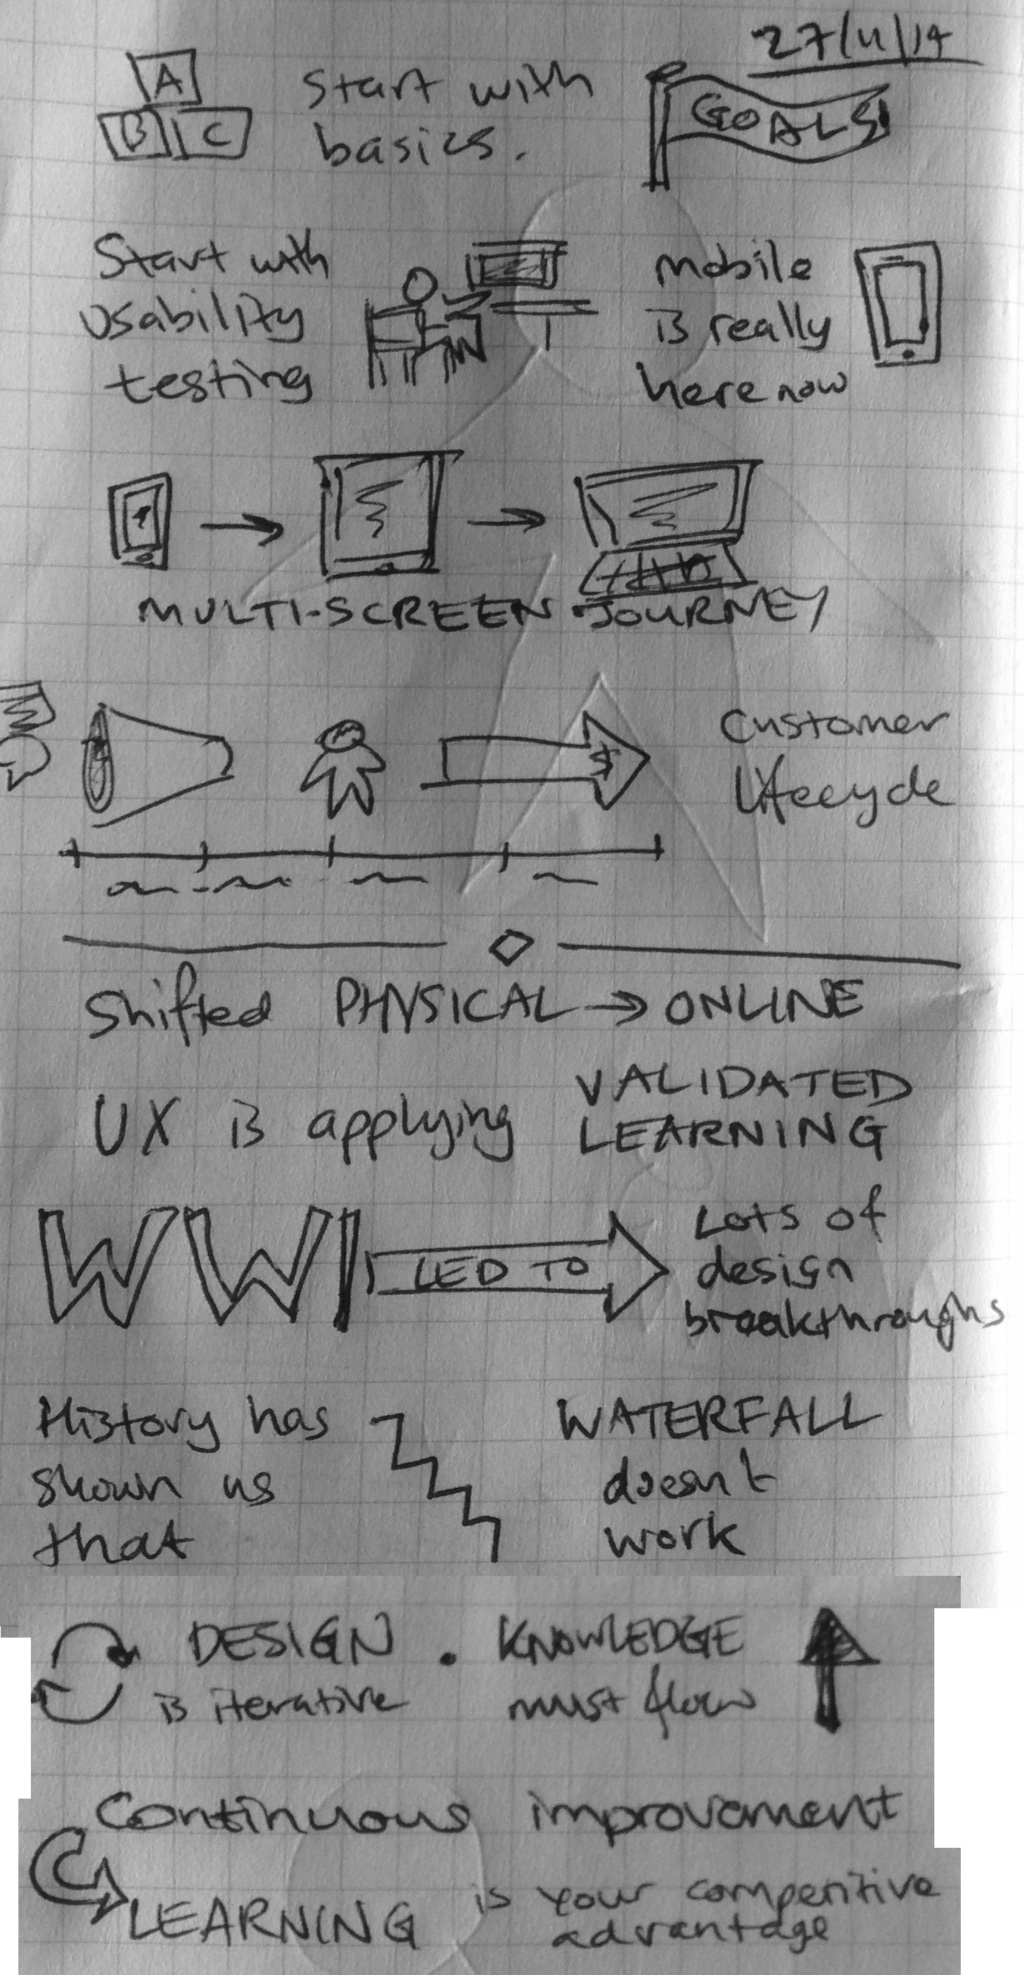 27/11/14
A
B C
Start with
basics.
GOALS
Start with
usability
testing
mobile
is really
here now
MULTI-SCREEN JOURNEY
$
Customer
Lifecycle
Shifted PHYSICAL → ONLINE
UX is applying VALIDATED
LEARNING
WWI LED TO
Lots of
design
breakthroughs
History has
shown us
that
WATERFALL
doesn't
work
DESIGN
is iterative
. KNOWLEDGE
must flow
Continuous improvement
LEARNING is your competitive
advantage